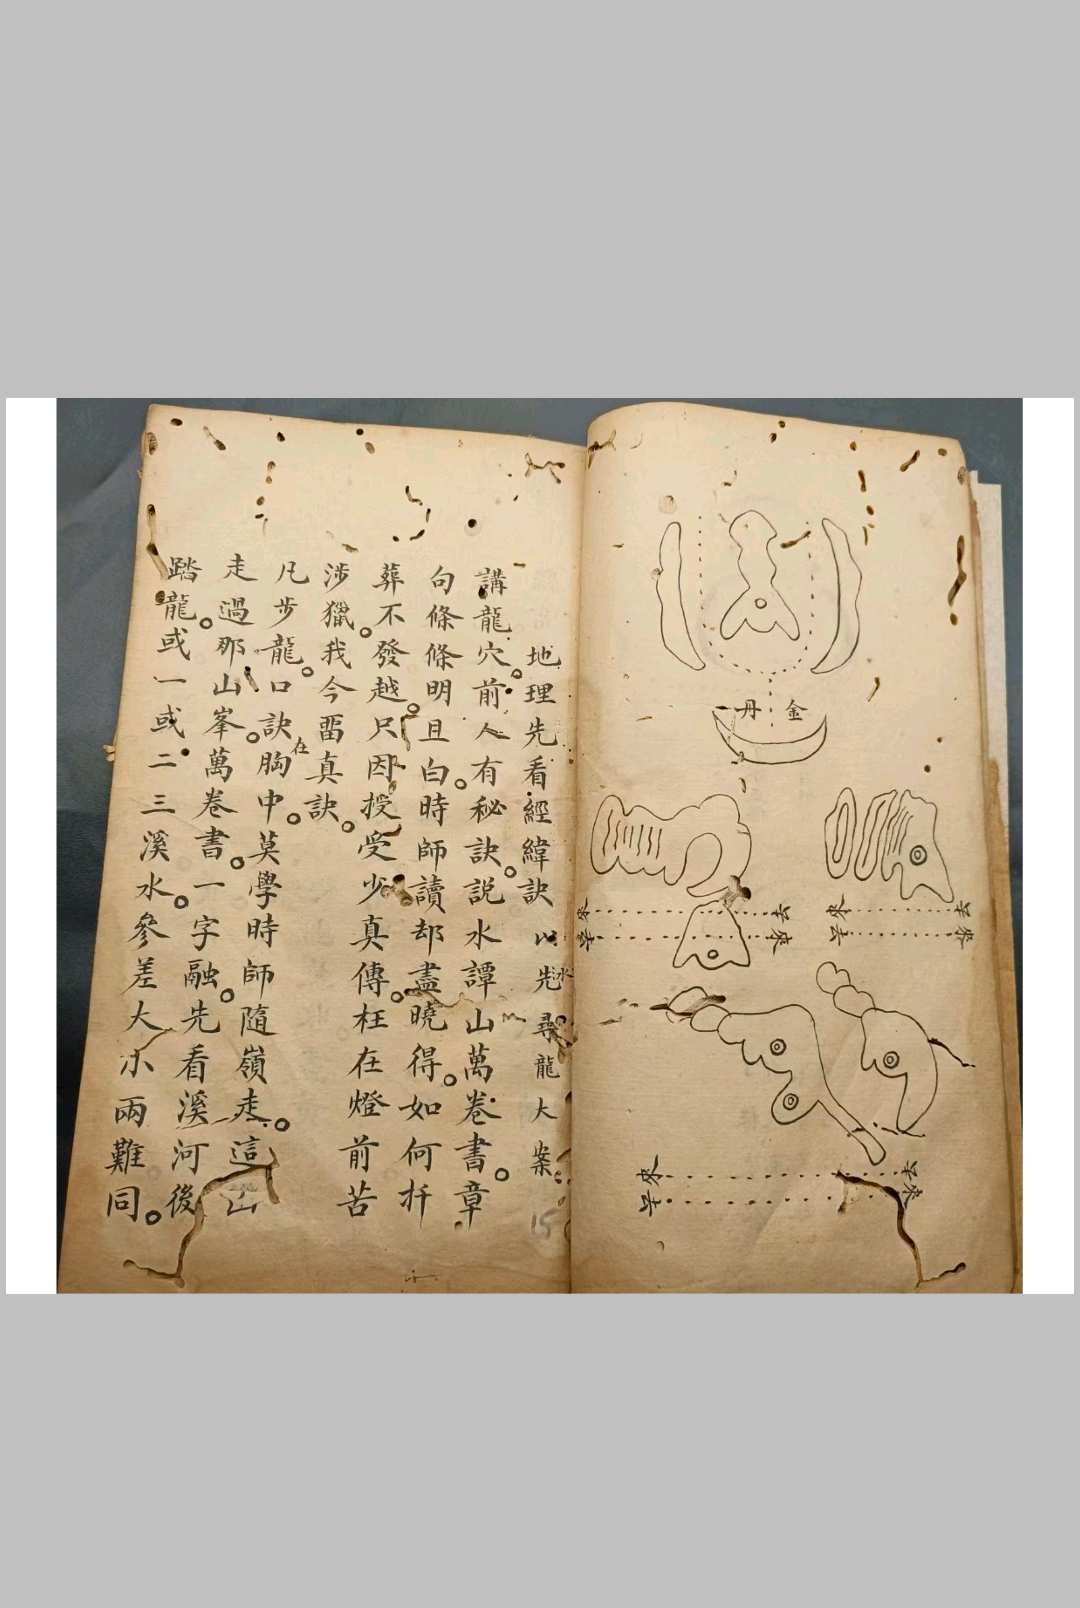 金丹
地理先看經緯訣 以先水尋龍大案
講龍穴。前人有秘訣。說水譚山萬卷書。章
句條條明且白。時師讀却盡曉得。如何扦
葬不發越。只因授受少真傳。枉在燈前苦
涉獵。我今畱真訣。
凡步龍。口訣在胸中。莫學時師隨嶺走。這山
走過那山峯。萬卷書。一字融。先看溪河後
踏龍。或一或二三溪水。參差大小兩難同。
15